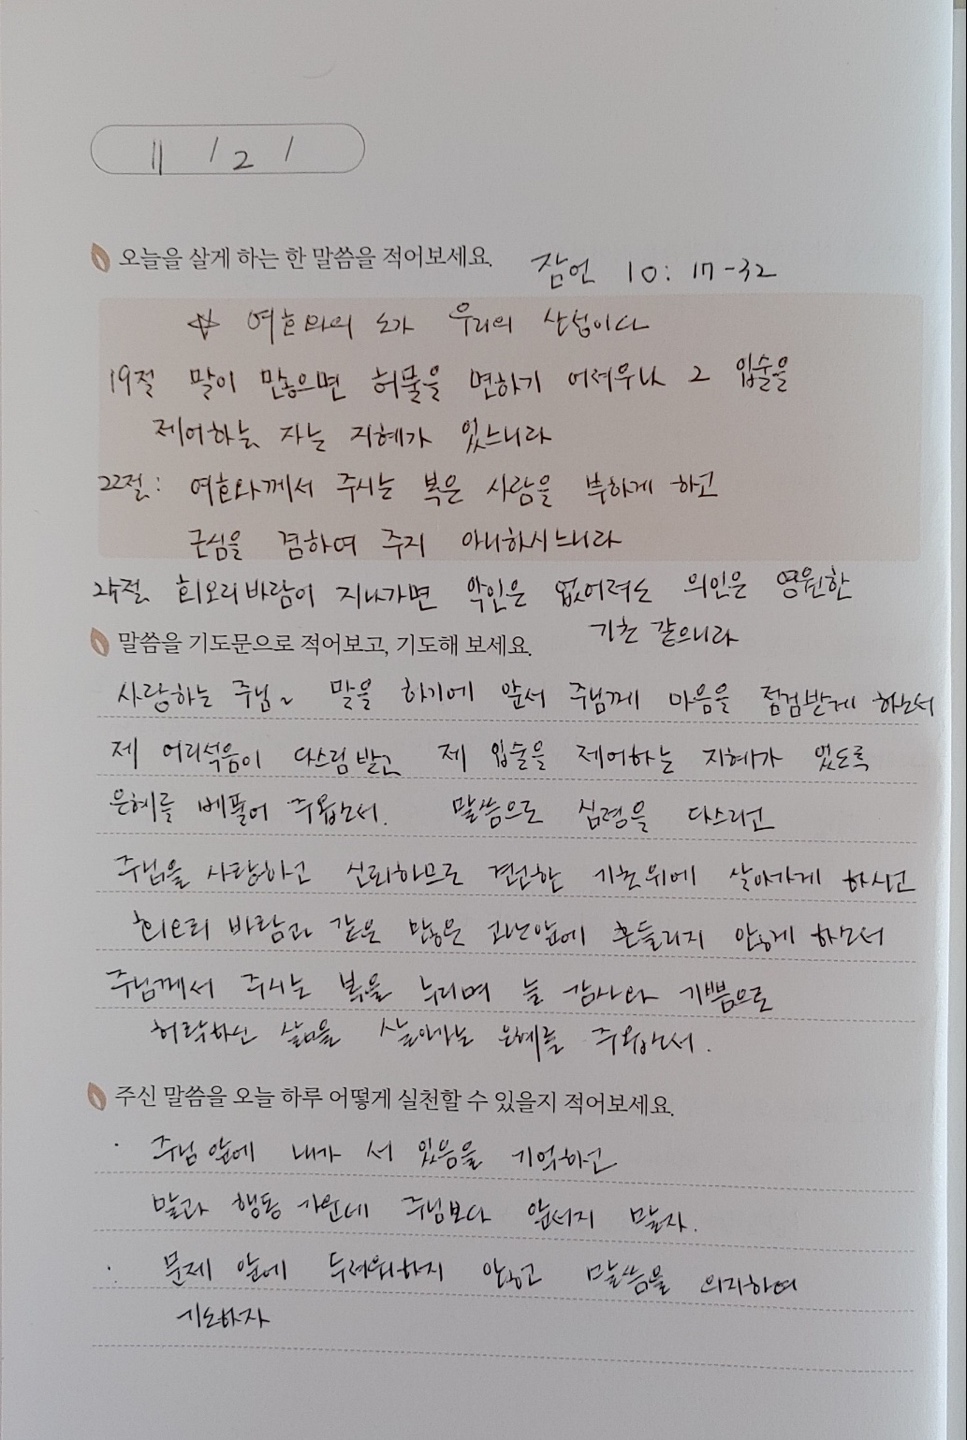 11 / 2 /
오늘을 살게 하는 한 말씀을 적어보세요. 잠언 10: 17-32
☆ 여호와의 도가 우리의 산성이다
19절 말이 많으면 허물을 면하기 어려우나 그 입술을
제어하는 자는 지혜가 있느니라
22절: 여호와께서 주시는 복은 사람을 부하게 하고
근심을 겸하여 주지 아니하시느니라
25절 회오리바람이 지나가면 악인은 없어져도 의인은 영원한
기초 같으니라
말씀을 기도문으로 적어보고, 기도해 보세요.
사랑하는 주님~ 말을 하기에 앞서 주님께 마음을 점검받게 하소서
제 어리석음이 다스림 받고 제 입술을 제어하는 지혜가 있도록
은혜를 베풀어 주옵소서. 말씀으로 심령을 다스리고
주님을 사랑하고 신뢰하므로 견고한 기초위에 살아가게 하시고
회오리 바람과 같은 많은 고난앞에 흔들리지 않게 하소서
주님께서 주시는 복을 누리며 늘 감사와 기쁨으로
허락하신 삶을 살아가는 은혜를 주옵소서.
주신 말씀을 오늘 하루 어떻게 실천할 수 있을지 적어보세요.
· 주님 앞에 내가 서 있음을 기억하고
말과 행동 가운데 주님보다 앞서지 말자.
· 문제 앞에 두려워하지 않고 말씀을 의지하여
기도하자